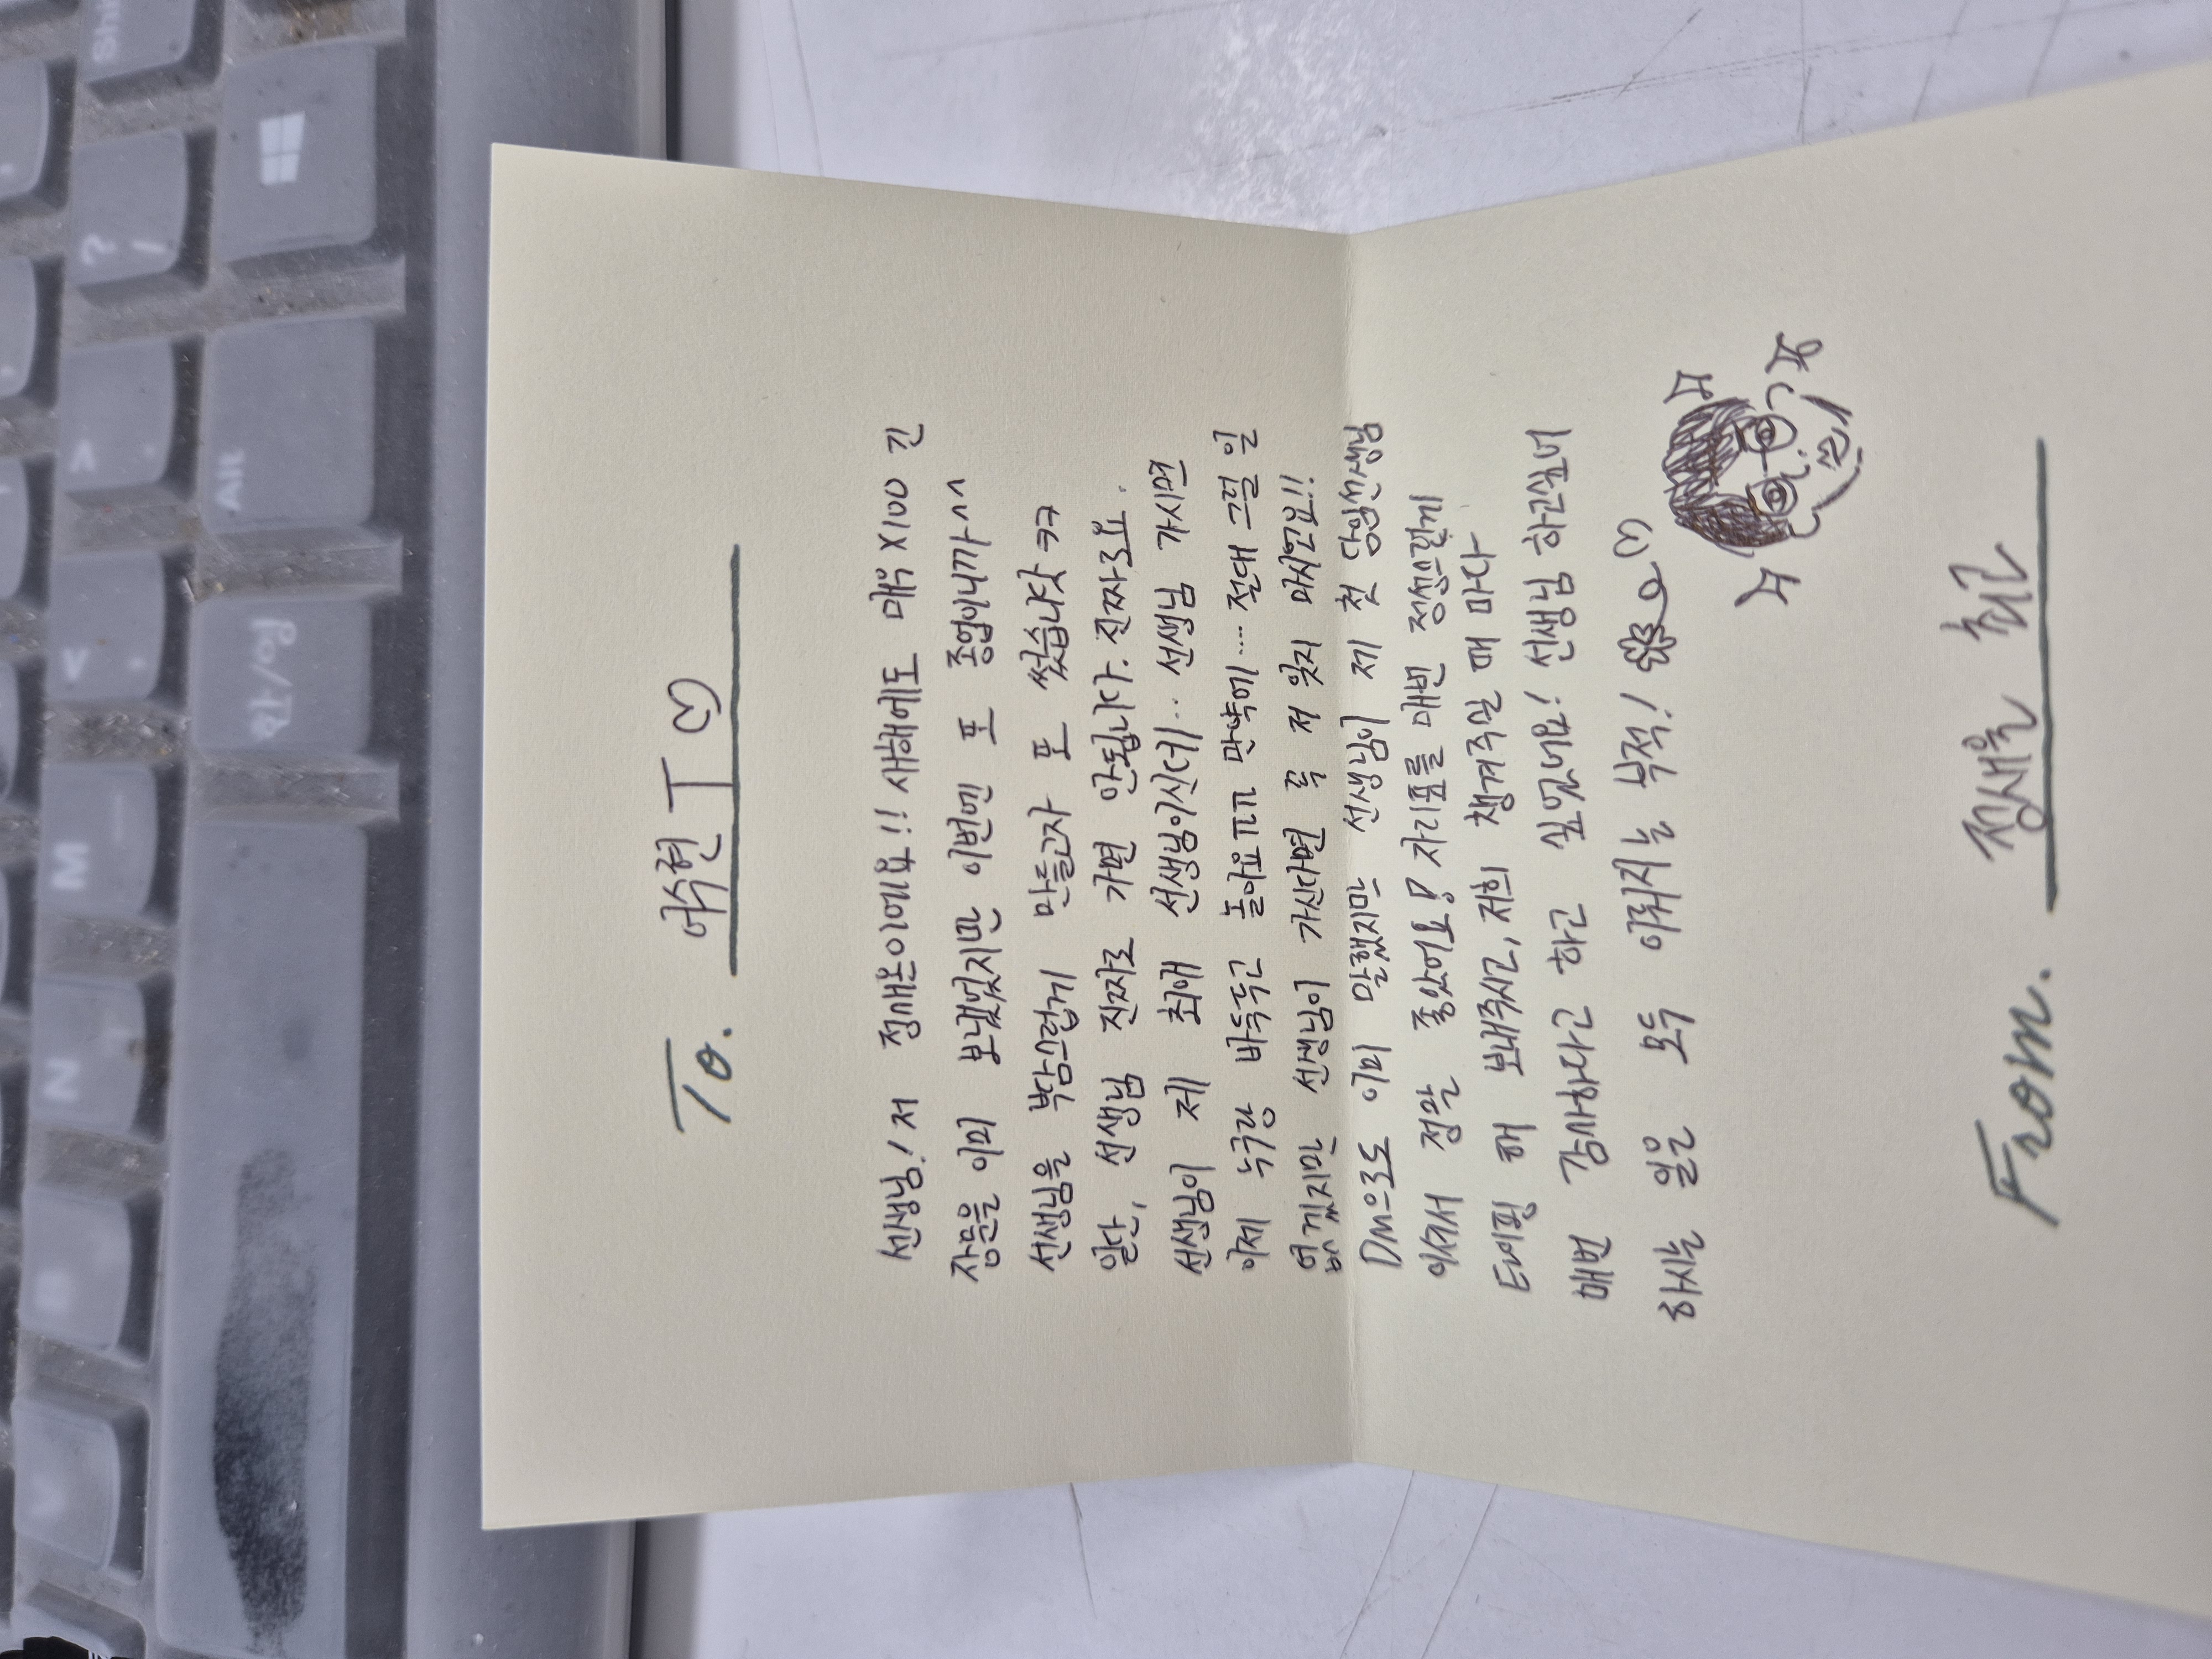 To. 어수현 T♡
선생님! 저 정새온이에요!! 새해에도 매우 X100 긴
장문을 이미 보냈었지만 이번엔 또 종업이니까^^
선생님을 부담스럽게 만들고자 또 썼습니닷 ㅋㅋ
일단, 선생님 진짜로 가면 안됩니다. 진짜로요.
선생님이 제 최애 선생님이신데... 선생님 가시면
이제 누구랑 바둑두고 놀아요ㅠㅠ 만약에.... 절대 그럴 일
없겠지만 선생님이 가신다면 꼭 저 잊지 마시언요!!
Dm으로도 이미 말했지만 선생님이 제 첫 담임선생님
이셔서 정말 좋았어요! 자리표를 매번 정성스럽게
테이핑 해 보내주시고, 저희 챙겨주실 때 마다
매번 감사하다고 하고 싶었너요! 선생님 하고싶너
하시는 일은 모두 이뤄지는 부적! ♡
From. 정새온 최근
Shift
?
/
>
.
Alt
<
,
한/영
M
N
B
V